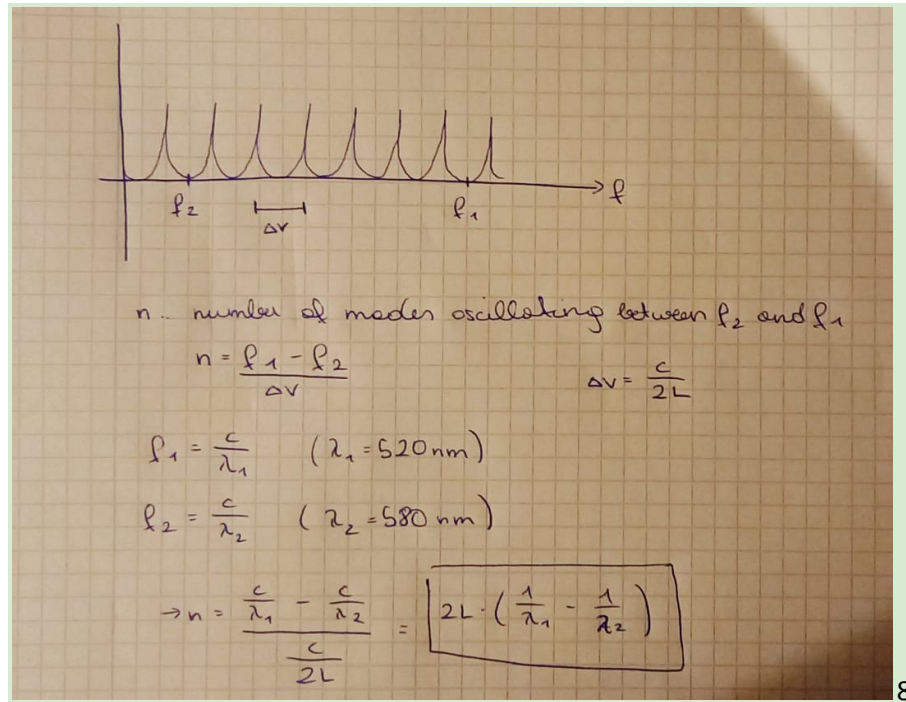 f
f₂
f₁
Δν
n .. number of modes oscillating between f₂ and f₁
n = (f₁ - f₂) / Δν    Δν = c / 2L
f₁ = c / λ₁    (λ₁ = 520 nm)
f₂ = c / λ₂    (λ₂ = 580 nm)
→ n = (c/λ₁ - c/λ₂) / (c/2L) = 2L · (1/λ₁ - 1/λ₂)
8